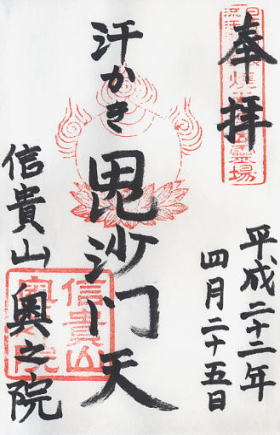 奉拝
平成二十二年
四月二十五日
汗かき
毘沙門天
信貴山
奥之院
信貴山
奥之院